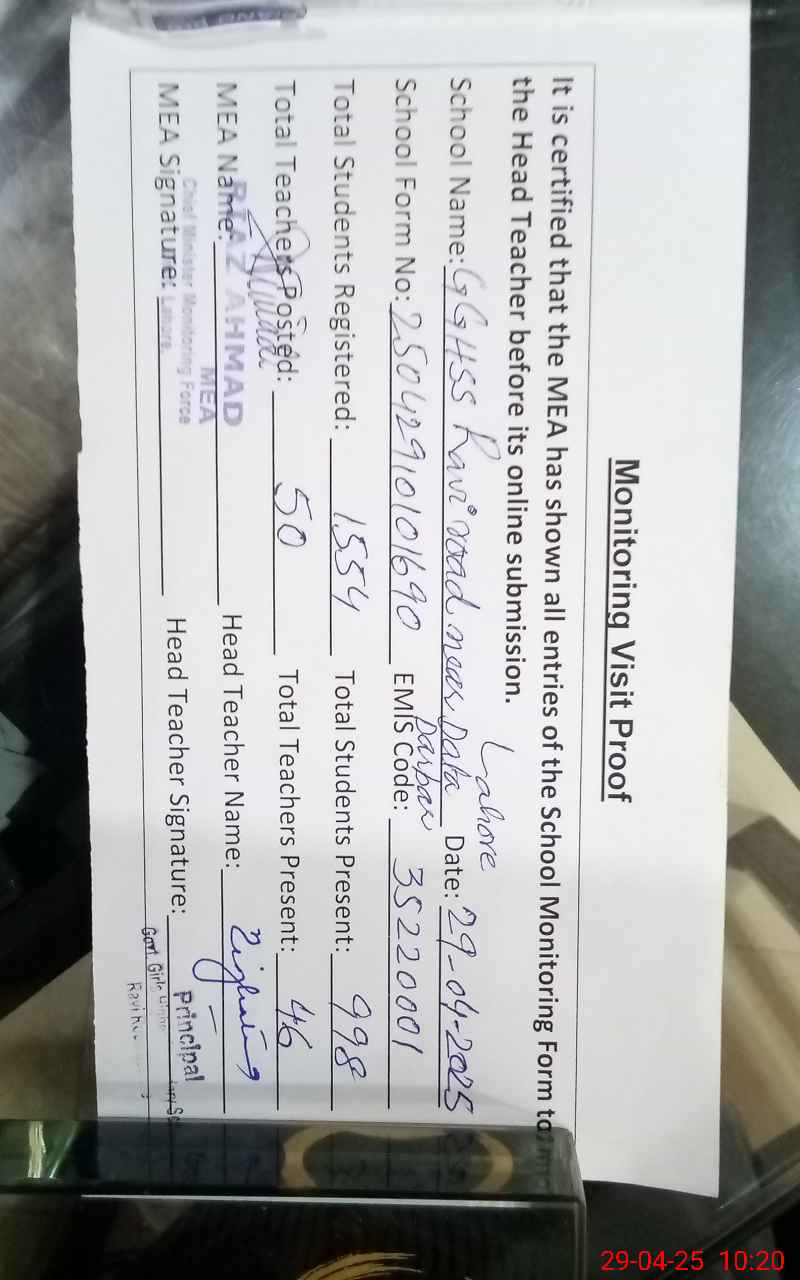 Monitoring Visit Proof
It is certified that the MEA has shown all entries of the School Monitoring Form to me
the Head Teacher before its online submission.
Lahore
School Name: GGHSS Ravi road near Data Darbar Date: 29-04-2025
School Form No: 25042910101690 EMIS Code: 35220001
Total Students Registered: 1554 Total Students Present: 998
Total Teachers Posted: 50 Total Teachers Present: 46
MEA Name: RIAZ AHMAD Head Teacher Name:
MEA
Chief Minister Monitoring Force
MEA Signature: Lahore. Head Teacher Signature:
Principal
Govt. Girls
Ravi
29-04-25 10:20